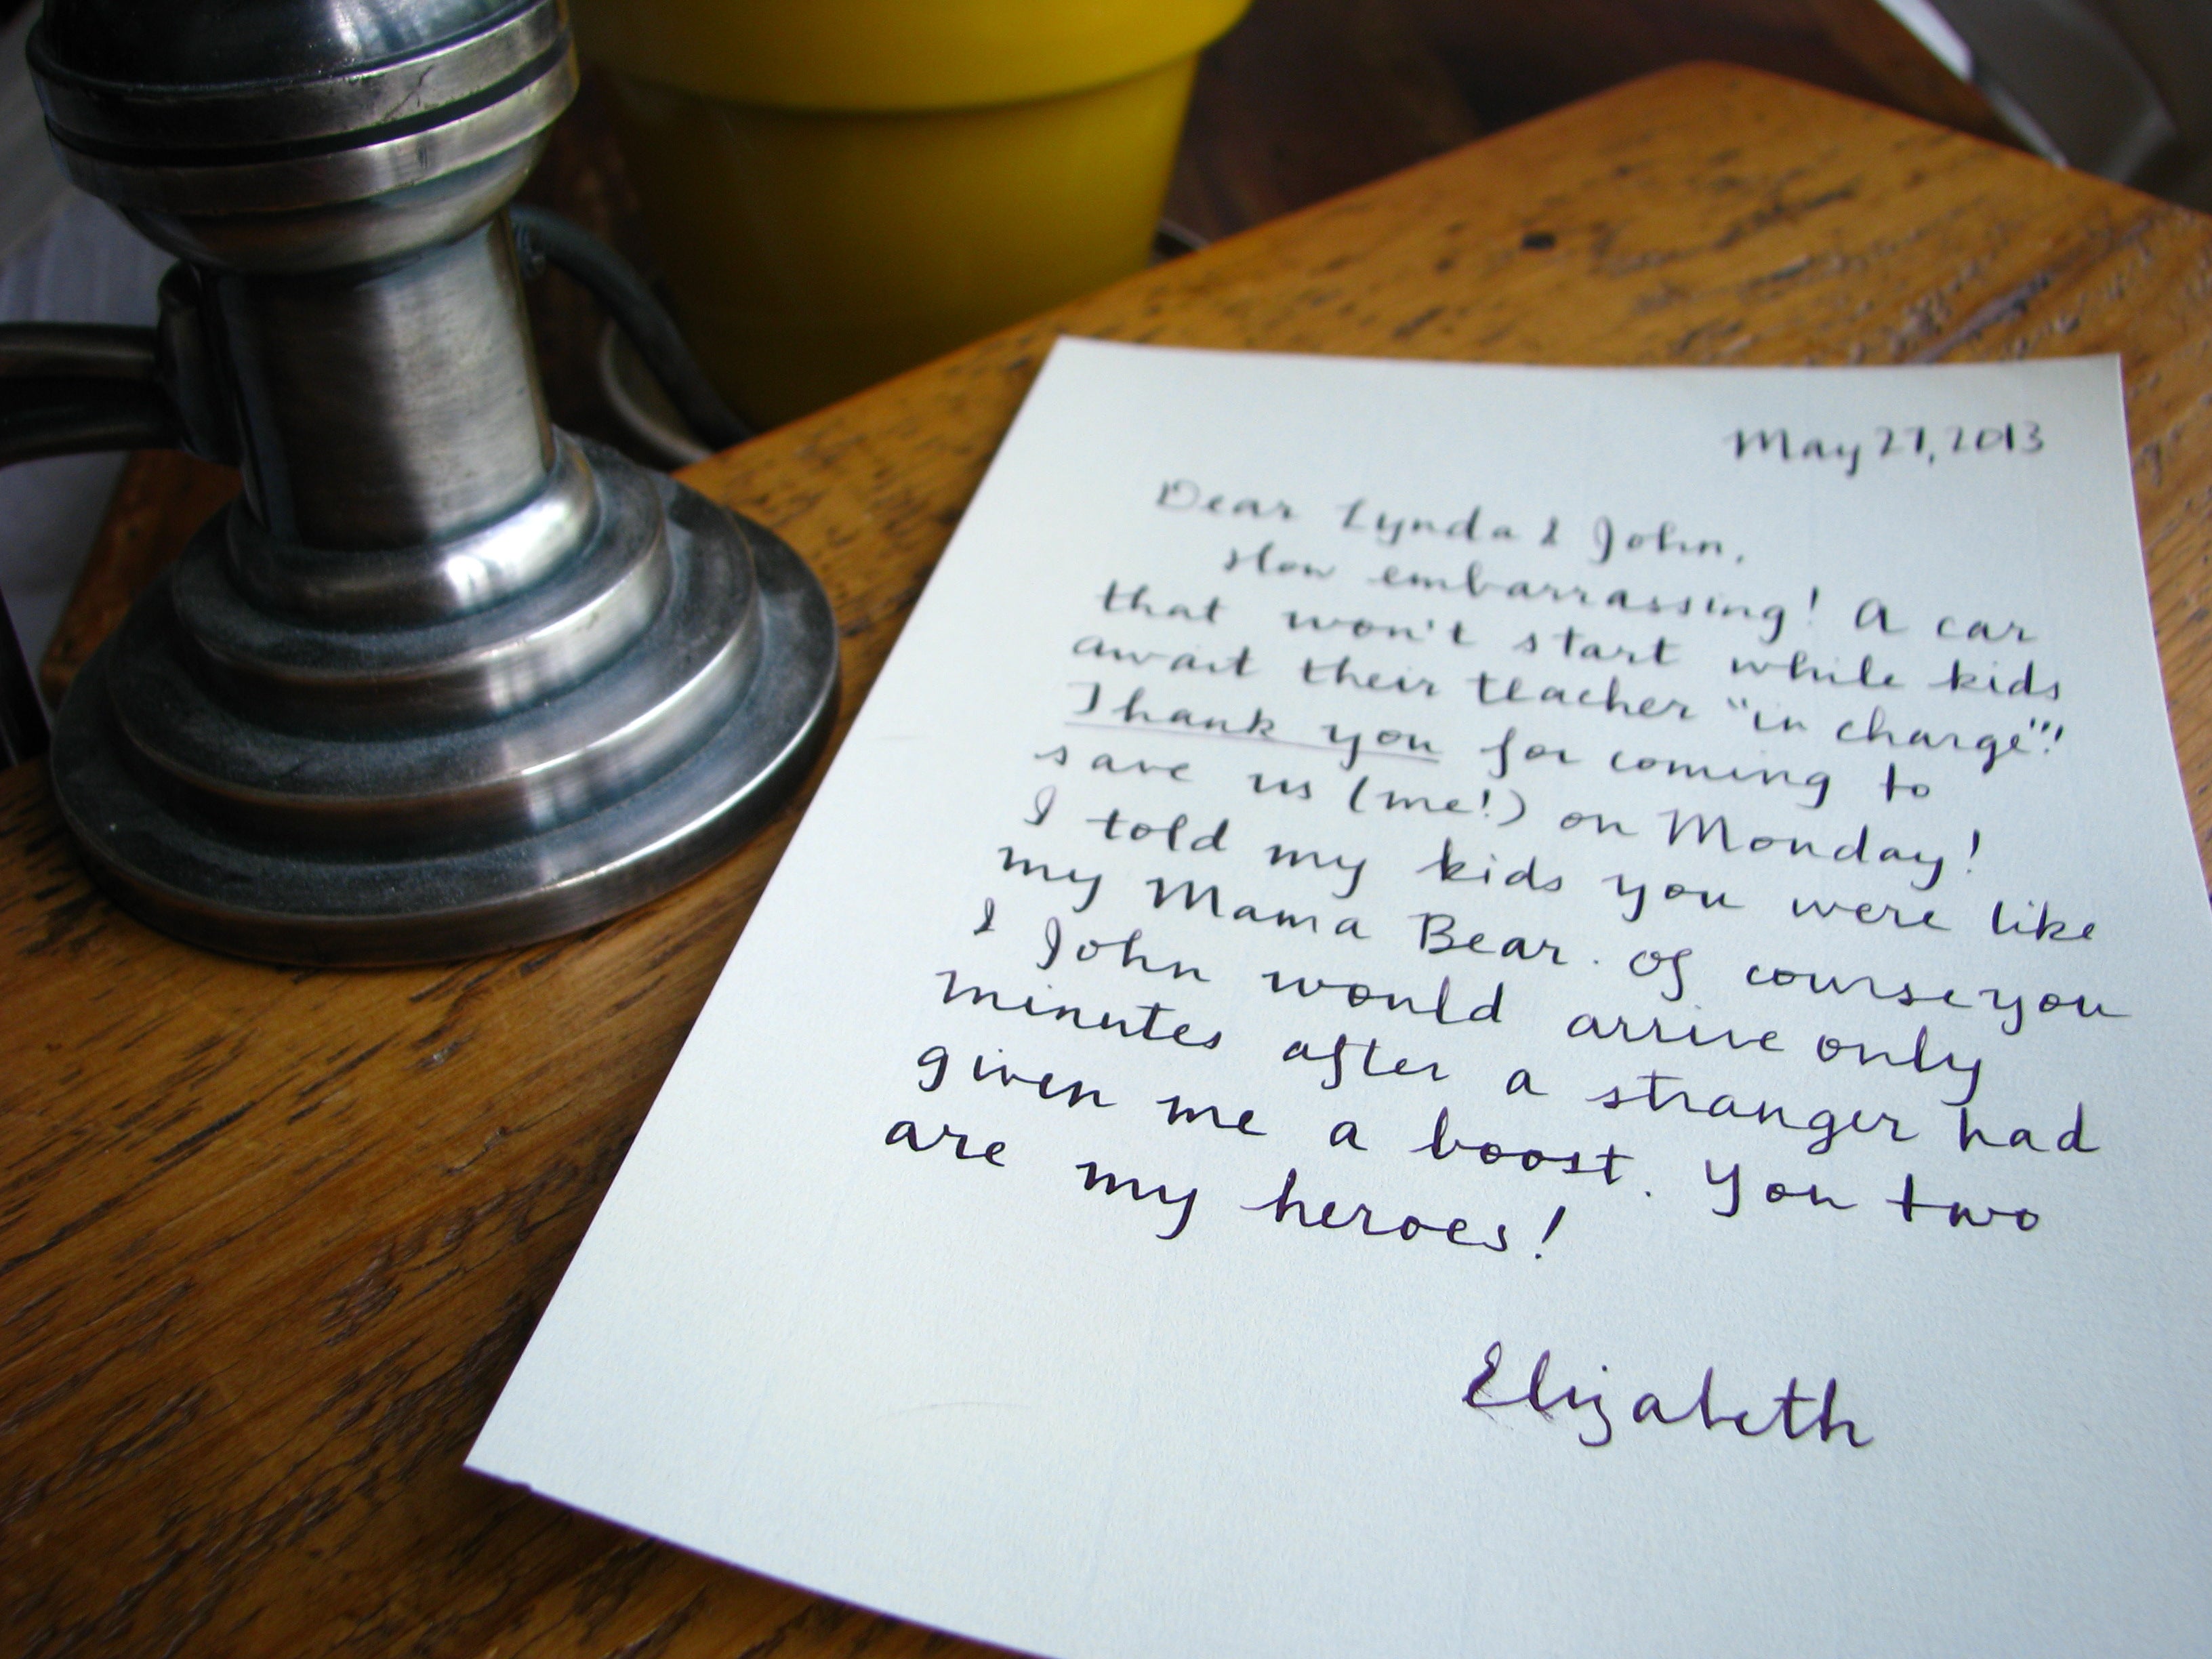 May 27, 2013
Dear Lynda & John,
How embarrassing! A car
that won't start while kids
await their teacher "in charge"!
Thank you for coming to
save us (me!) on Monday!
I told my kids you were like
my Mama Bear. Of course you
& John would arrive only
minutes after a stranger had
given me a boost. You two
are my heroes!
Elizabeth